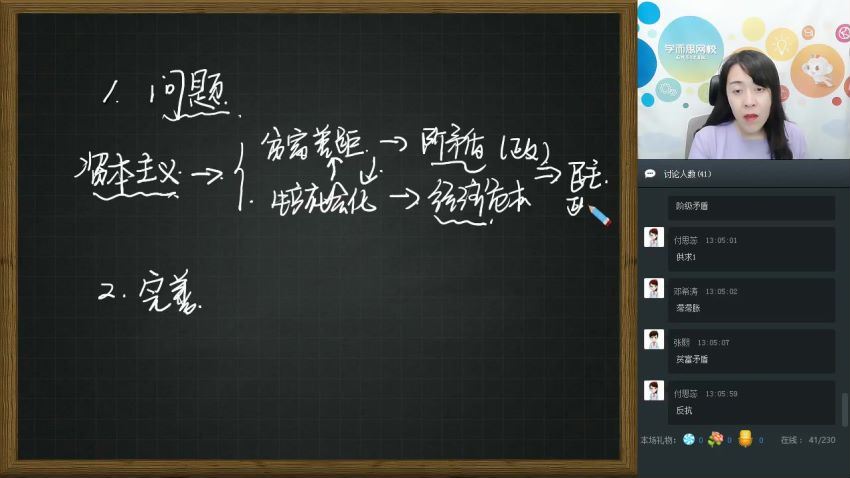 1. 问题
资本主义 → { 贫富差距 → 阶矛盾 (政)
生产社会化 → 经济危机
2. 完善
学而思网校
讨论人数(41)
阶级矛盾
付思蕊 13:05:01
供求1
邓裕涛 13:05:02
滞滞胀
张颢 13:05:07
贫富矛盾
付思蕊 13:05:59
反抗
本场礼物: 0 0 0 在线: 41/230